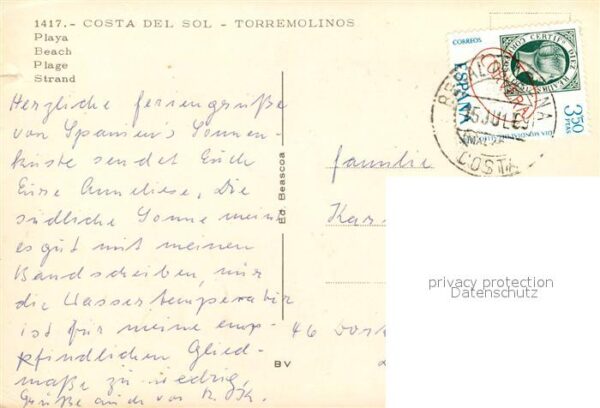 1417.- COSTA DEL SOL - TORREMOLINOS
Playa
Beach
Plage
Strand
Herzliche Feriengrüße
von Spaniens Sonnen-
küste sendet Euch
Eure Anneliese, Die
südliche Sonne meint
es gut mit meinen
Bandscheiben, nur
die Wassertemperatur
ist für meine emp-
pfindlichen Glied-
maße zu niedrig,
Grüße auch von
Ed. Beascoa
BV
CORREOS
ESPAÑA
3'50
PTAS
CORREOS
CERTFO
JUL
Familie
Kar
46 Dort
privacy protection
Datenschutz